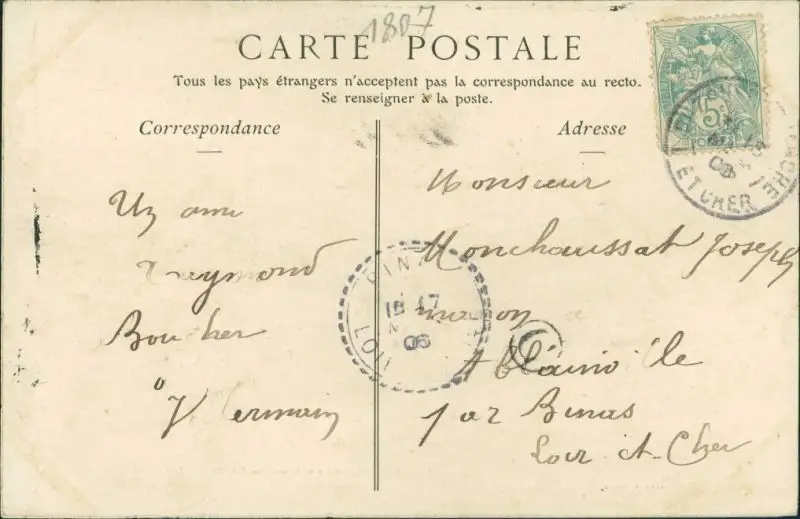 1807
CARTE POSTALE
Tous les pays étrangers n'acceptent pas la correspondance au recto.
Se renseigner à la poste.
Correspondance
Adresse
Un ami
Raymond
Boucher
Monsieur
Monchaussat Joseph
maçon
par Binas
Loir et-Cher
5c
ET CHER
06
LOIR
06